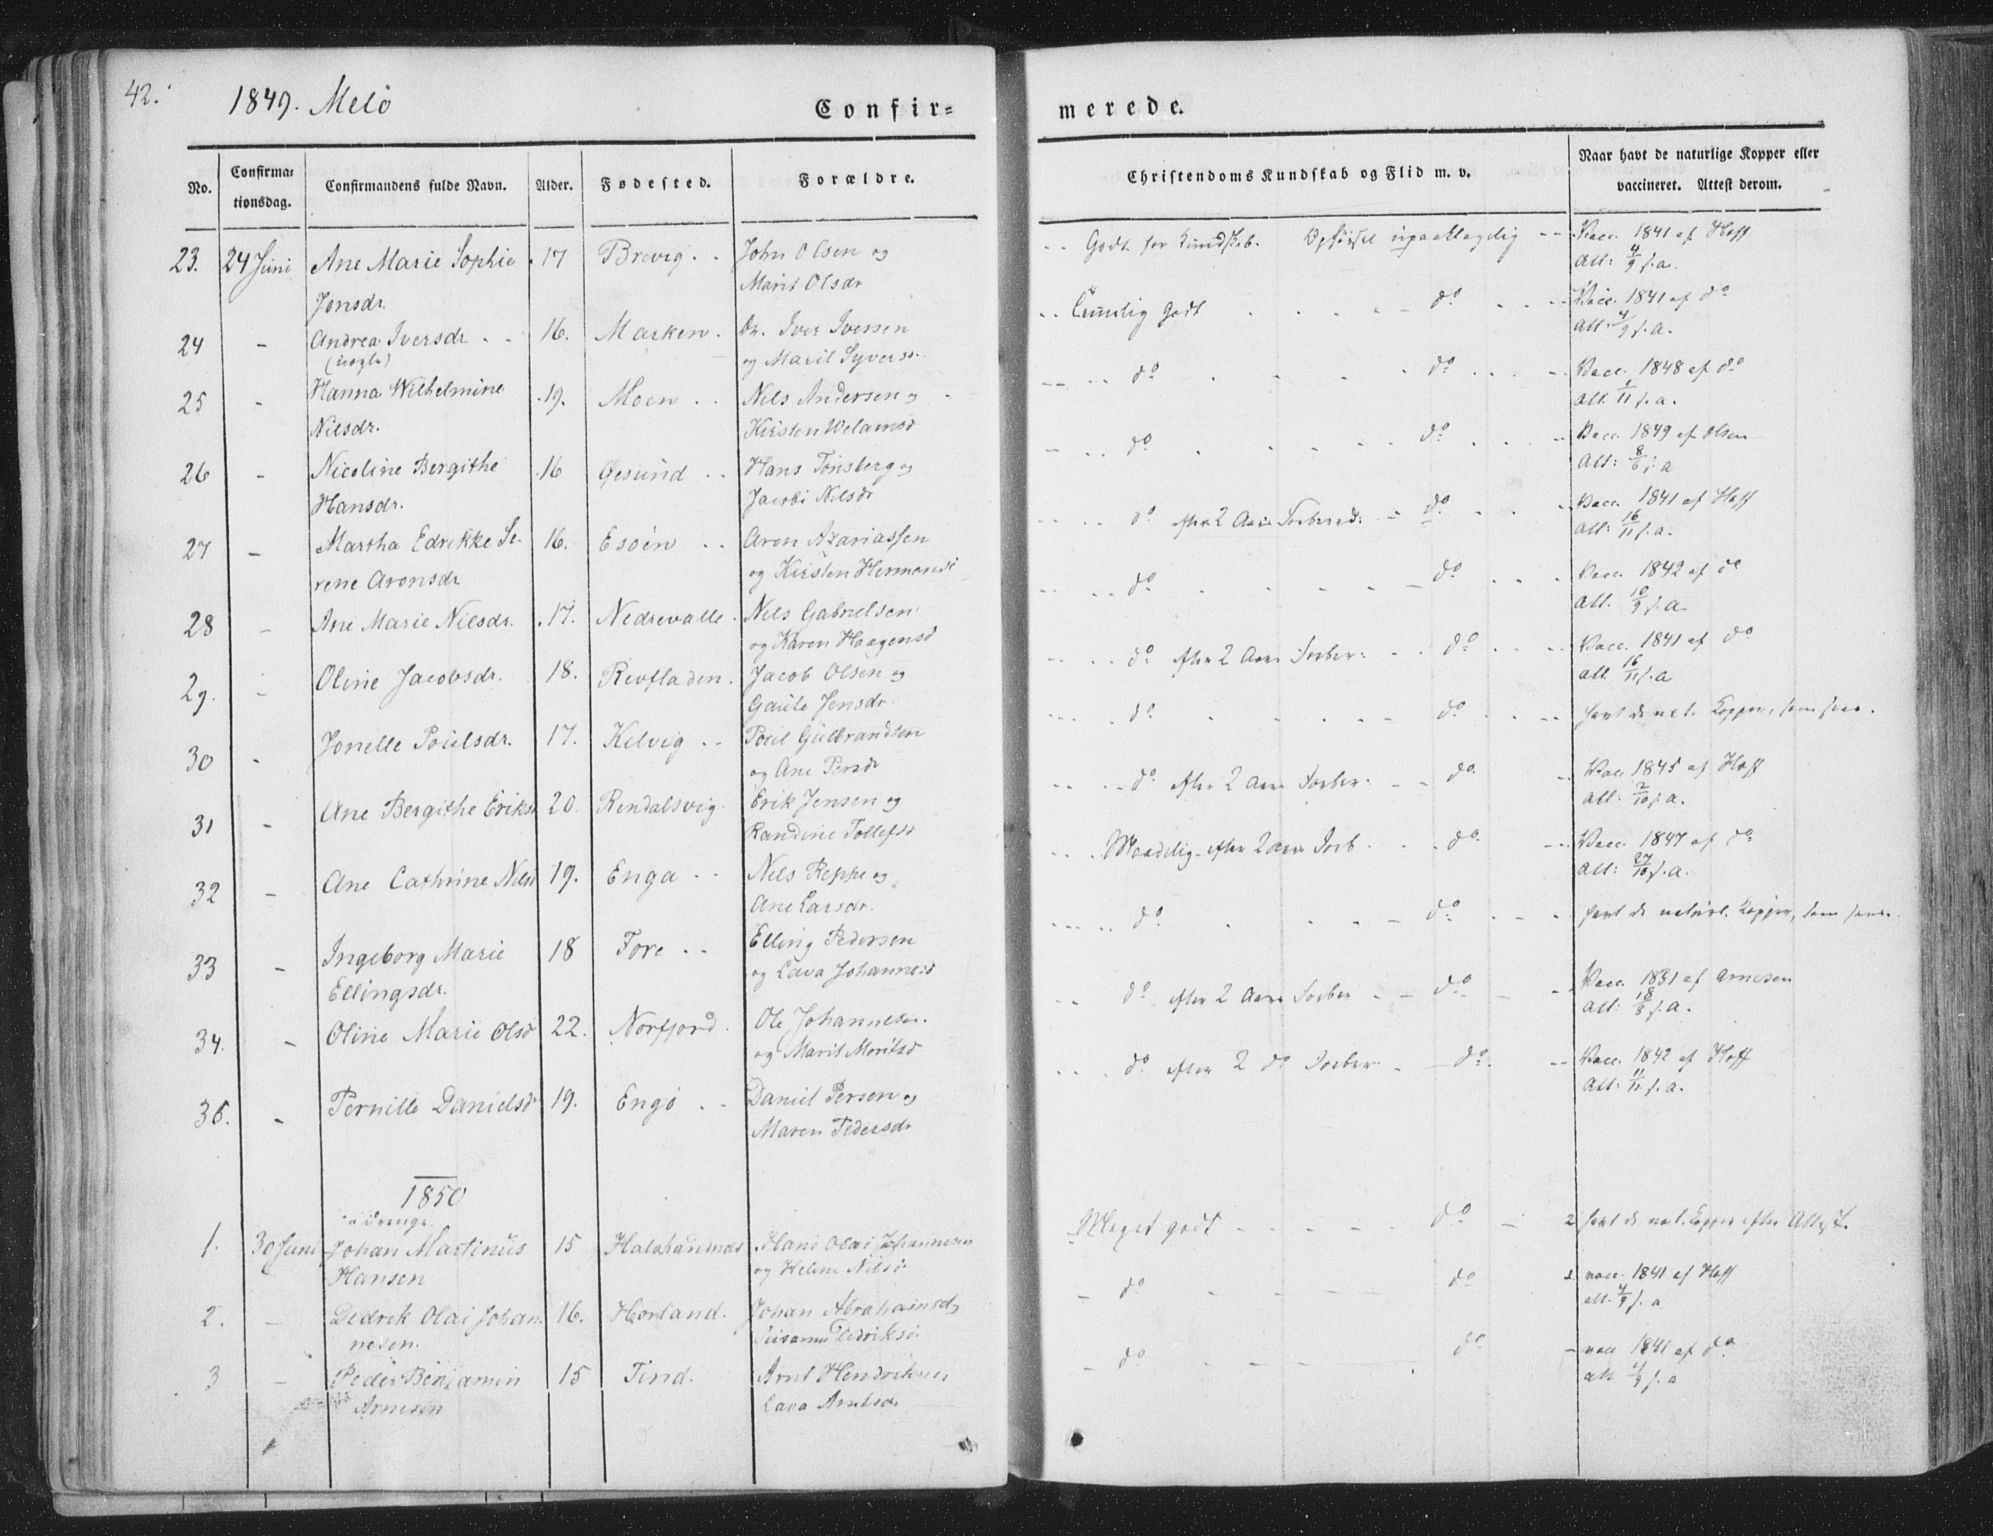 42.
1849. Melö
Confir=
merede.
No.
Confirma=
tionsdag.
Confirmandens fulde Navn.
Alder.
Fødested.
Forældre.
Christendoms Kundskab og Flid m. v.
Naar havt de naturlige Kopper eller
vaccineret. Attest derom.
23. 24 Juni Ane Marie Sophie 17 Brevig John Olsen og Godt for Kundskab. Opførsel upaaklagelig Vacc. 1841 af Hoff
Jonsdr. Marit Olsdr Att: 4/9 s. a.
24 - Andrea Iversdr 16. Marken Iver Iversen Temlig Godt do Vacc. 1841 af do
(uægte) og Marit Syversd. Att. 4/9 s. a.
25 - Hanna Wilhelmine 19. Moen Nils Andersen og do do Vacc. 1848 af do
Nilsdr. Kirsten Att. 1/11 s. a.
26 - Nicoline Bergithe 16 Øesund Hans Tønsberg og do do Vacc. 1849 af Olsen
Hansdr. Jacobi Nilsdr Att: 8/6 s. a
27 - Martha Edrikke Se- 16. Esøen Aron Azariassen do efter 2 Aars Forbered: do Vacc. 1841 af Hoff
rene Aronsdr og Kirsten Hermansd Att: 16/11 s. a.
28 - Ane Marie Nilsdr. 17. Nedrevalle Nils Gabrielsen do do Vacc. 1842 af do
og Karen Haagensd Att. 10/9 s. a.
29. - Oline Jacobsdr. 18. Revfladen. Jacob Olsen og do efter 2 Aars Forber: do Vacc. 1841 af do
Jensdr. Att 16/11 s. a
30 - Jonelle Poulsdr. 17. Kelvig Poul Gulbrandsen do do havt de nat. Kopper,
og Ane Persdr
31 - Ane Bergithe Eriksd 20. Rendalsvig Erik Jensen og do efter 2 Aars Forber: do Vacc 1845 af Hoff
Randine Tollefsd Att: 2/10 s. a.
32 - Ane Cathrine Nilsd 19. Enga Nils Reppe og Maadelig efter 2 Aars Forb do Vacc. 1847 af do
Ane Larsdr. Att: 27/10 s. a.
33 - Ingeborg Marie 18 Fore Elling Pedersen do do havt de naturl. Kopper,
Ellingsdr. og Lava Johannesd
34. - Oline Marie Olsd 22. Norfjord Ole Johannesen do efter 2 Aars Forber do Vacc. 1831 af Arnesen
og Marit Moritsd Att: 18/8 s. a.
35. - Pernille Danielsd 19. Engö Daniel Persen og do efter 2 do Forber do Vacc. 1842 af Hoff
Maren Pedersdr Att: 11/11 s. a.
1850
Drenge.
1. 30 Juni Johan Martinus 15 Halshandnæs Hans Olai Johannesen Meget godt do havt de nat. Kopper efter Attest.
Hansen og Helene Nilsd
2. - Dedrek Olai Johan- 16. Horland. Johan Abrahamsd do do vacc. 1841 af Hoff
nesen. Dedriksd. att. 4/9 s. a
3 - Peder Benjamin 15 Tind. Arnt Hendriksen do do vacc 1841 af do
Arntsen Lava Arntsdr att 4/9 s. a